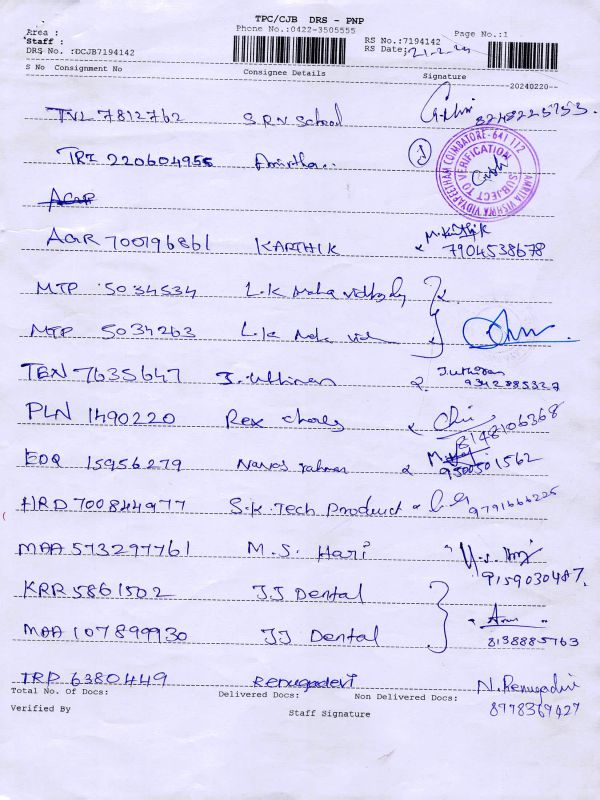 TPC/CJB DRS - PNP
Phone No.:0422-3505555
Area :
Staff :
DRS No. :DCJB7194142
RS No.:7194142
RS Date: 21-2-24
Page No.:1
S No Consignment No Consignee Details Signature
20240220--
TVL 7812762 S.R.N School 8248225753.
TRI 220604955
AMRITA VISHWA VIDYAPEETHAM COIMBATORE-641 112
SUBJECT TO VERIFICATION
AGR 700796861 KARTHIK M.Karthik
7904538678
MTP 5034534 L.K
MTP 5034263 L.K
TEN 7635647
9342885327
PLN 1490220 Rex
8148106368
EDQ 15956279
9500501562
HRD 700844977 S.K. Tech Product 9791666225
MAA 573297761 M.S. Hari
9159030487,
KRR 5861502 JJ Dental
MAA 107899930 JJ Dental 8138885763
TRP 6380449 Renugadevi N. Renugadevi
Total No. Of Docs: Delivered Docs: Non Delivered Docs: 8778369427
Verified By Staff Signature